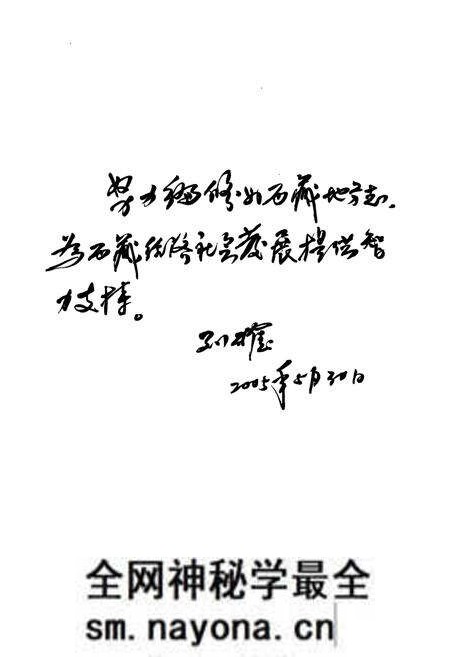 努力编修好西藏地方志,
为西藏经济社会发展提供智
力支持。
2005年5月30日
全网神秘学最全
sm.nayona.cn